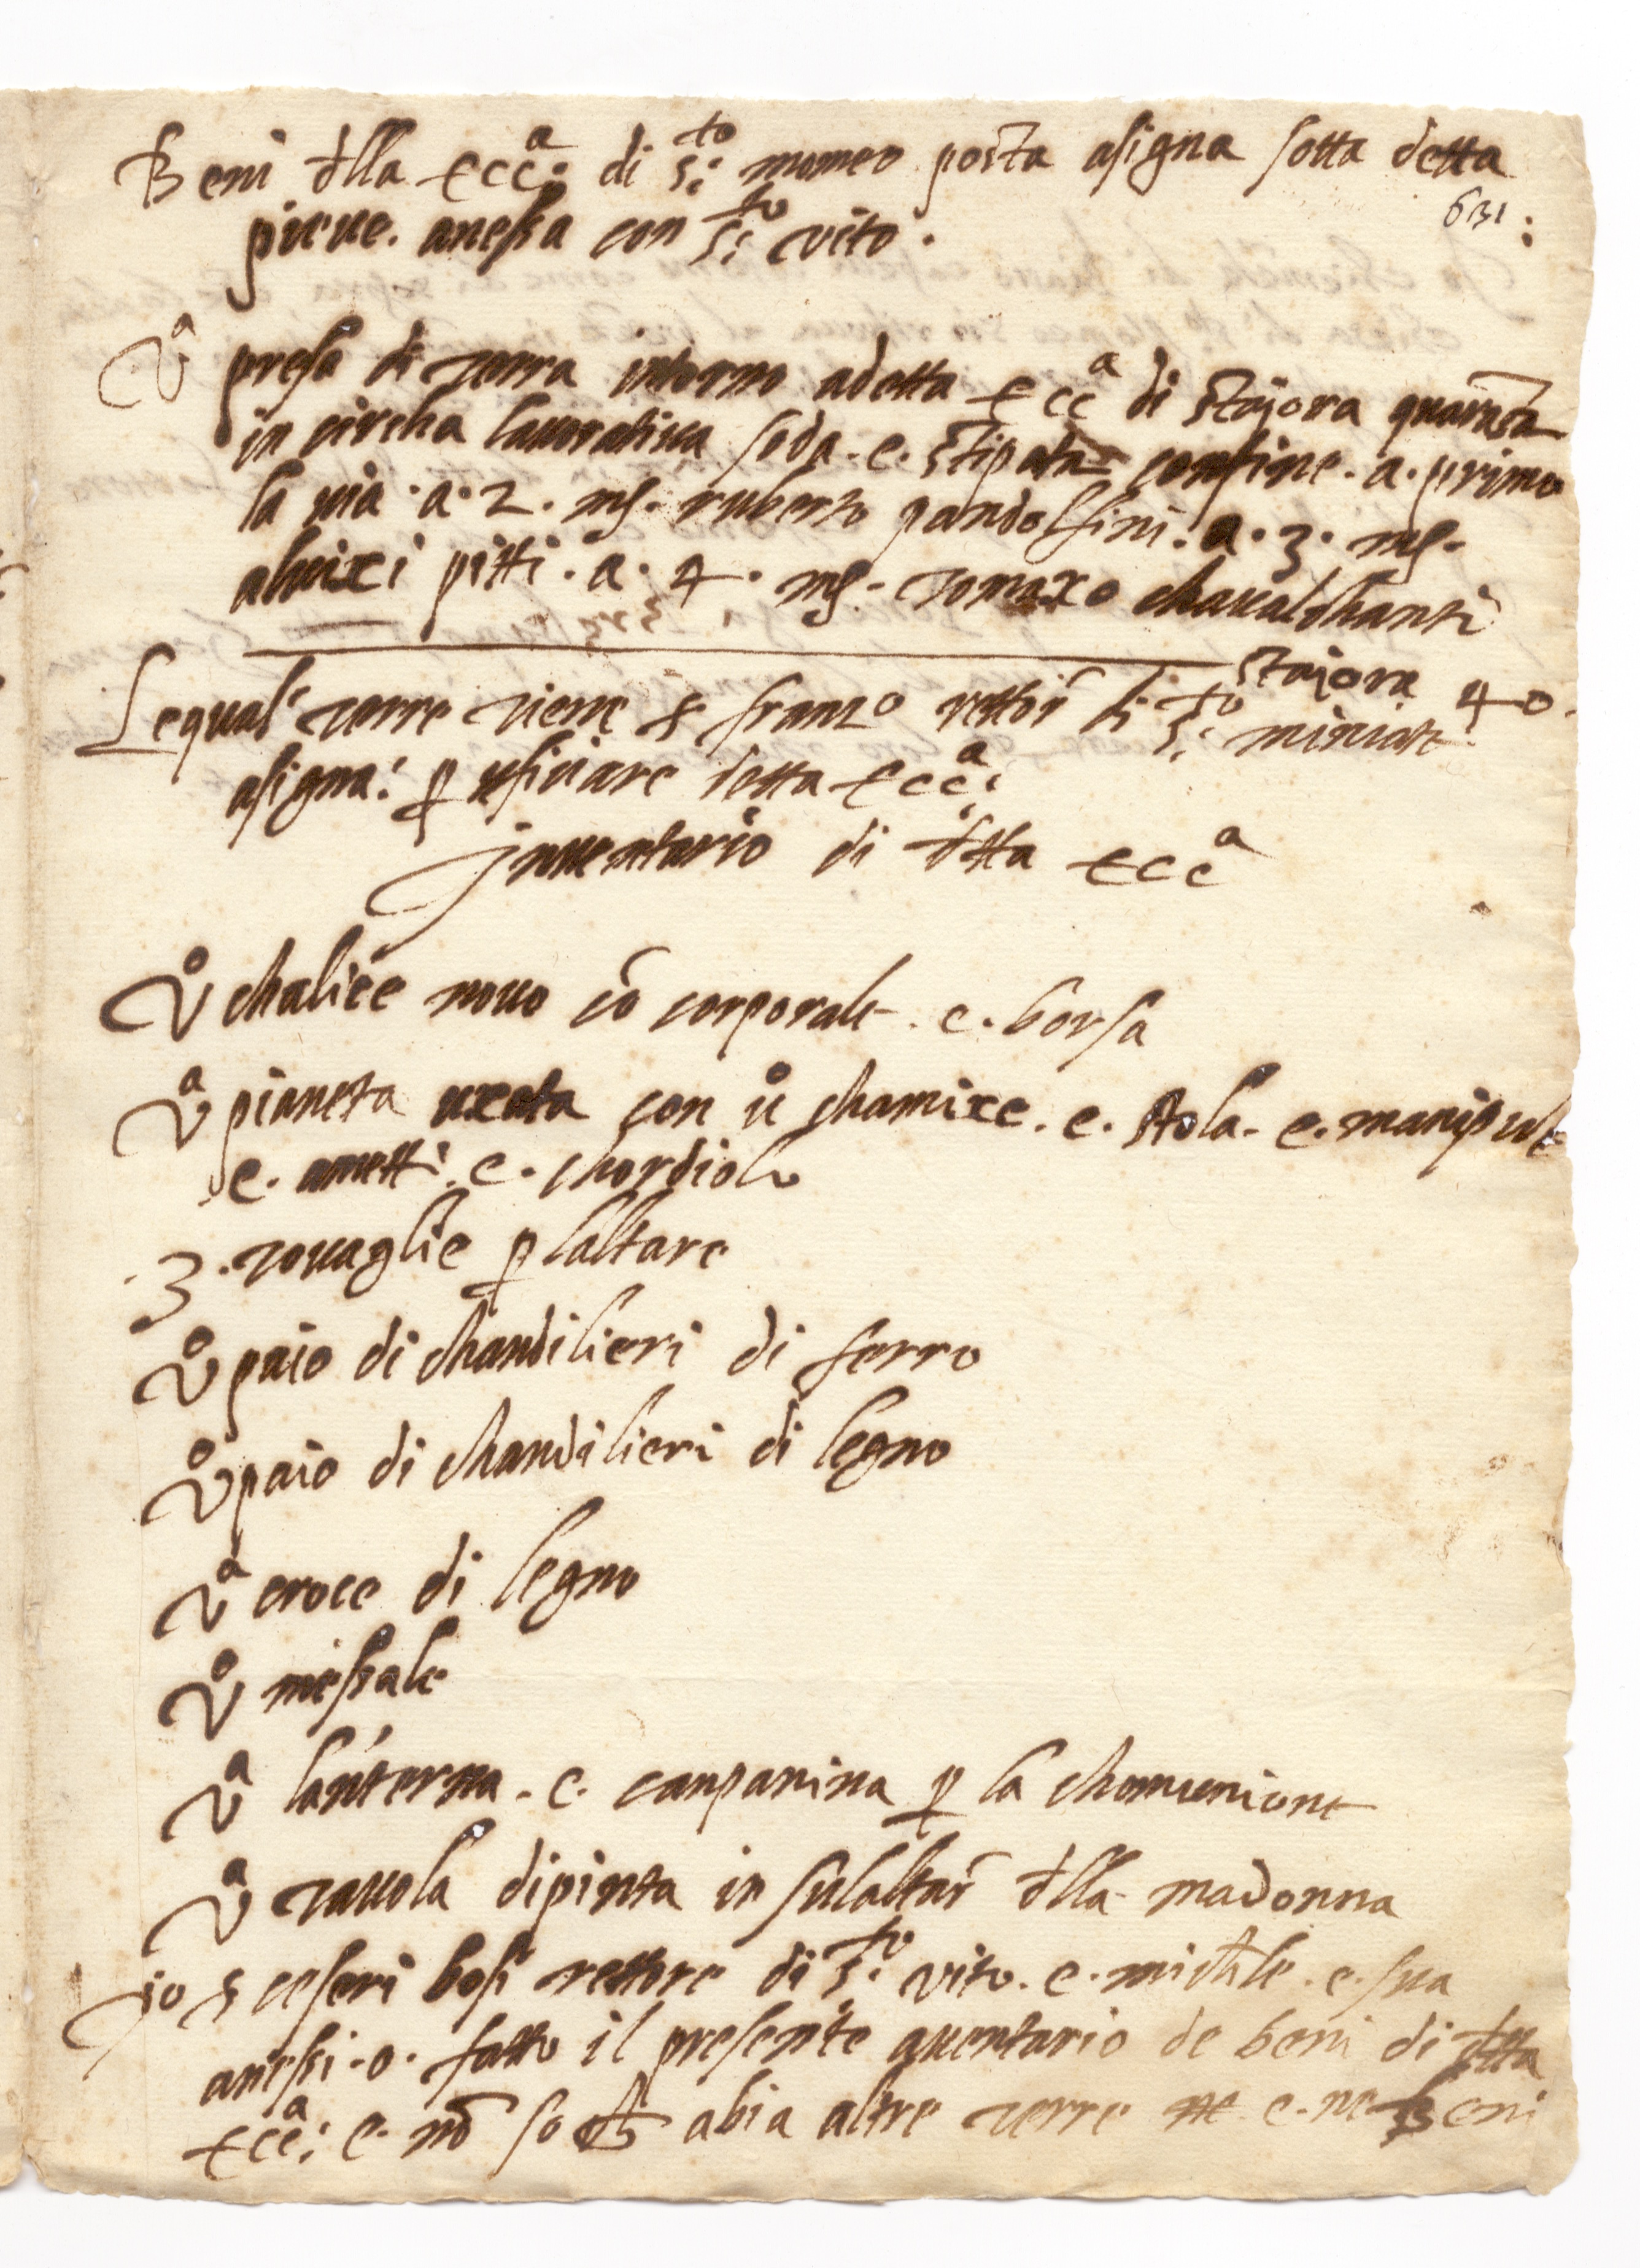 Beni dlla eccᵃ: di s:ᵗᵒ momeo posta asigna sotta detta
631:
pieue. anessa con s:ᵗᵒ vito.
Vᵃ presa di terra intorno adetta eccᵃ di stajora quaranta
in circha lauoratiua soda. e. stipata confine. a. primo
la uia. a. 2. mſ. ruberto pandolfini. a. 3. mſ.
aluixi pitti. a. 4. mſ. tomaxo chaualchanti
stajora 40.
Lequali terre tiene s franᶻᵒ rettor di s:ᵗᵒ miniato
asigna: p ufiziare detta eccᵃ:
jnuentario di dtta eccᵃ
Vᵒ chalice nouo cō corporale. e. borsa
Vᵃ pianeta uxata con uᵒ chamixe. e. stola. e. manipolo
e. amitti. e. chordiglo
.3. touaglie p laltare
Vᵒ paio di chandilieri di ferro
Vᵒ paio di chandilieri di legno
Vᵃ croce di legno
Vᵒ messale
Vᵃ lanterna. e. canpanina p la chomunione
Vᵃ tauola dipinta in sulaltar dlla madonna
jo s ceseri bosi rettore di s:ᵗᵒ vito. e. michele. e. sua
anessi. o. fatto il presente auentario de beni di dtta
eccᵃ: e. nō so ch abia altre terre ne e. ne beni